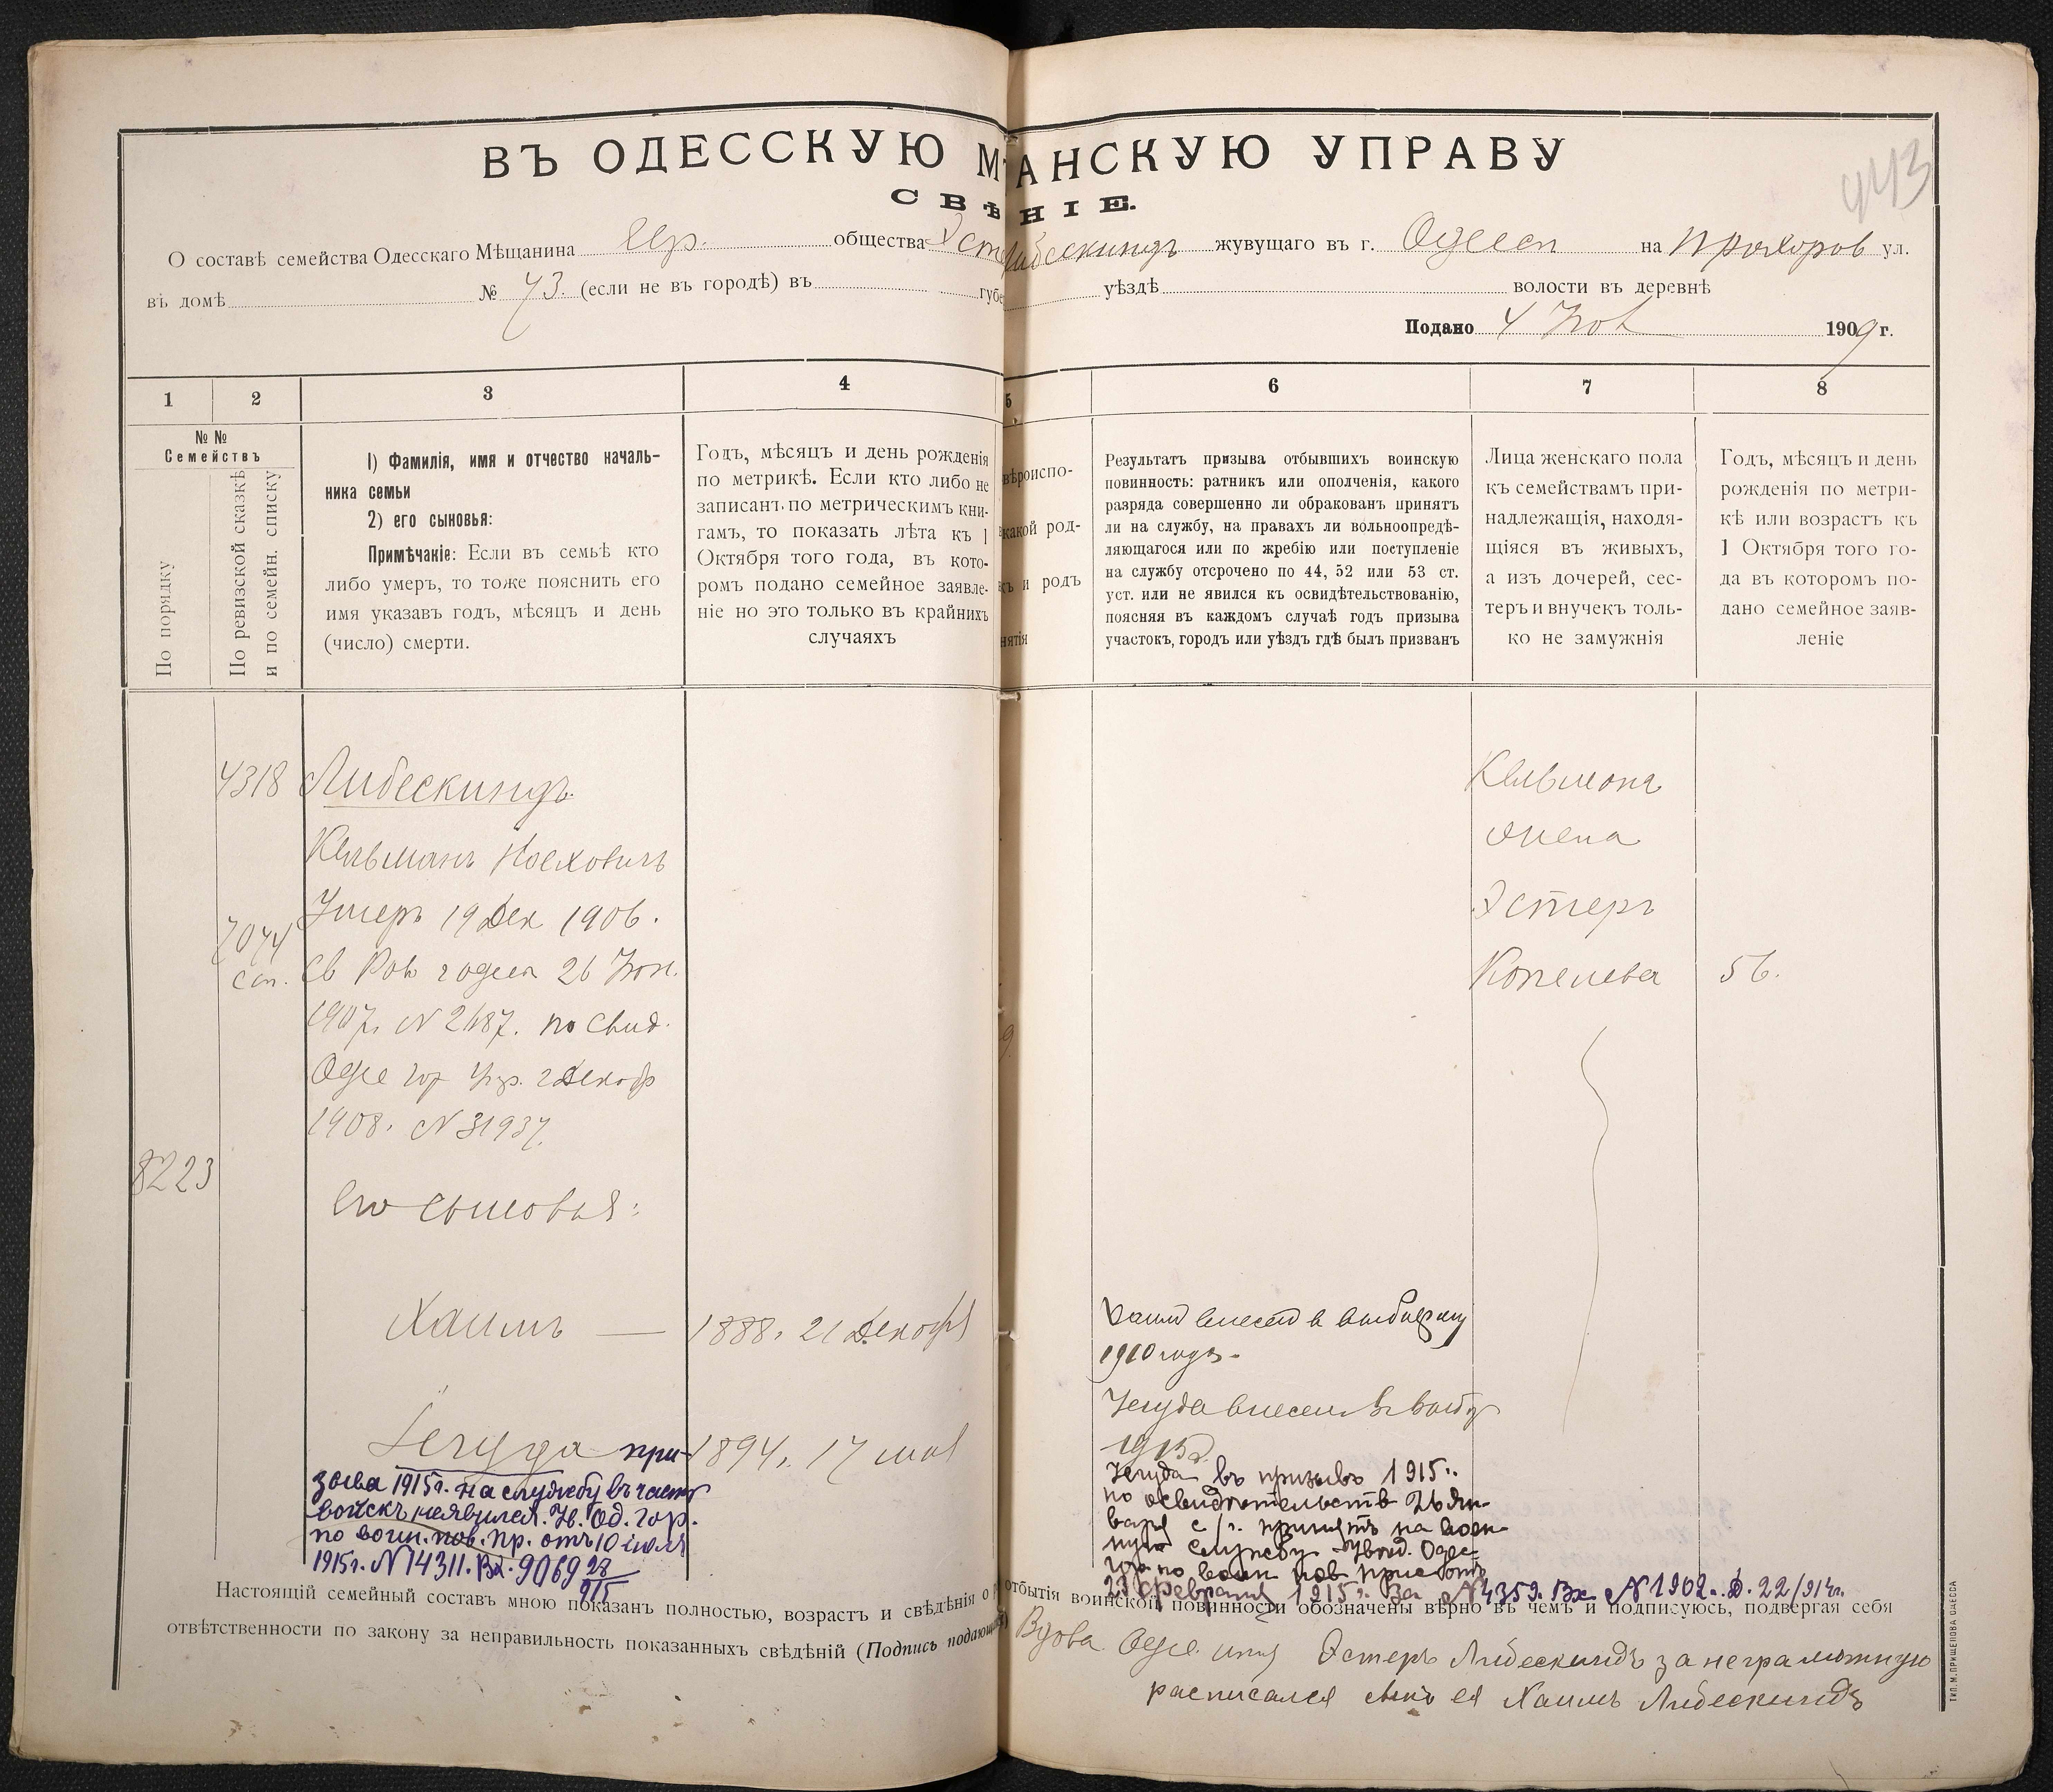 443
ВЪ ОДЕССКУЮ М АНСКУЮ УПРАВУ
СВѢ НІЕ.
О составѣ семейства Одесскаго Мѣщанина Евр. общества Эст Либескиндъ жувущаго въ г. Одессѣ на Прохоров ул.
въ домѣ № 43. (если не въ городѣ) въ губе уѣздѣ волости въ деревнѣ
Подано 4 1909 г.
1 2 3 4 5 6 7 8
№ №
Семействъ
По порядку
По ревизской сказкѣ
и по семейн. списку
1) Фамилія, имя и отчество началь-
ника семьи
2) его сыновья:
Примѣчакіе: Если въ семьѣ кто
либо умеръ, то тоже пояснить его
имя указавъ годъ, мѣсяцъ и день
(число) смерти.
Годъ, мѣсяцъ и день рожденія
по метрикѣ. Если кто либо не
записанъ по метрическимъ кни-
гамъ, то показать лѣта къ 1
Октября того года, въ кото-
ромъ подано семейное заявле-
ніе но это только въ крайнихъ
случаяхъ
вѣроиспо-
какой род-
и родъ
нятія
Результатъ призыва отбывшихъ воинскую
повинность: ратникъ или ополченія, какого
разряда совершенно ли обракованъ принятъ
ли на службу, на правахъ ли вольноопредѣ-
ляющагося или по жребію или поступленіе
на службу отсрочено по 44, 52 или 53 ст.
уст. или не явился къ освидѣтельствованію,
поясняя въ каждомъ случаѣ годъ призыва
участокъ, городъ или уѣздъ гдѣ былъ призванъ
Лица женскаго пола
къ семействамъ при-
надлежащія, находя-
щіяся въ живыхъ,
а изъ дочерей, сес-
теръ и внучекъ толь-
ко не замужнія
Годъ, мѣсяцъ и день
рожденія по метри-
кѣ или возрастъ къ
1 Октября того го-
да въ которомъ по-
дано семейное заяв-
леніе
4318 Либескиндъ
Кельманъ
Умеръ 19 Дек 1906.
7044
сп. Св Рав 26
1907г. N 2487. по свид.
Одес гор Упр. 2 Декабр
1908. N 31937.
8223
Его сыновья:
Хаимъ — 1888. 21 Декабря
Іегуда при- 1894г. 17 мая
зыва 1915г. на службу въ части
войскъ неявился. Ув. Од. гор.
по воин. пов. пр. отъ 10 іюля
1915г. N 14311. Вх. 9069 28/915
Кельмона
жена
Эстеръ
Копелева 56.
Хаим внесен в
1910 годъ.
Іегуда внесен въ
1915
Іегуда въ призывъ 1915г.
по освидѣтельств 26 Ян-
варя с/г. принятъ на воен-
ную службу Увѣд. Одес-
гор по воин пов прис отъ
23 февраля 1915г. За N 4359. Вх N 1902. Д. 22/914г.
Настоящій семейный составъ мною показанъ полностью, возрастъ и свѣдѣнія о отбытія воинской повинности обозначены вѣрно въ чемъ и подписуюсь, подвергая себя
отвѣтственности по закону за неправильность показанныхъ свѣдѣній (Подпись подающ Вдова Одес. Эстеръ Либескиндъ за неграмотную
расписался сынъ ея Хаимъ Либескиндъ
ТИП. М. ПРИЩЕПОВА ОДЕССА